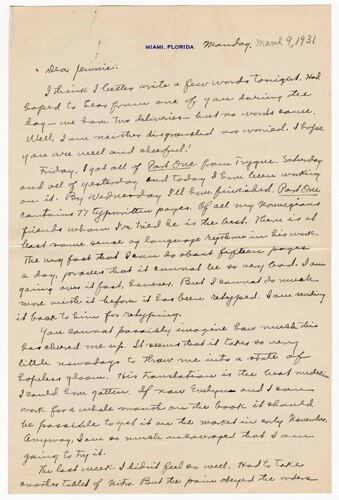 MIAMI, FLORIDA
Monday, March 9, 1931
Dear Jennie:
I think I better write a few words tonight. Had
hoped to hear from one of you during the
day – we have two deliveries – but no words came.
Well, I am neither disgruntled nor worried. I hope
you are well and cheerful!
Friday, I got all of Part One from Trygve. Saturday
and all of yesterday and today I have been working
on it. By Wednesday I'll have finished. Part One
contains 77 typewritten pages. Of all my Norwegian
friends whom I've tried he is the best. There is at
least some sense of language rythme in his work.
The very fact that I can do about fifteen pages
a day, proves that it cannot be so very bad. I am
going over it fast, however. But I cannot do much
more with it before it has been retyped. I am sending
it back to him for retyping.
You cannot possibly imagine how much this
has cheered me up. It seems that it takes so very
little nowadays to throw me into a state of
hopeless gloom. This translation is the best medicine
I could have gotten. If now Evelyn and I can
work for a whole month on the book it should
be possible to get it on the market in early November.
Anyway, I am so much encouraged that I am
going to try it.
The last week I didn't feel so well. Had to take
another tablet of Nitro. But the pain obeyed the orders